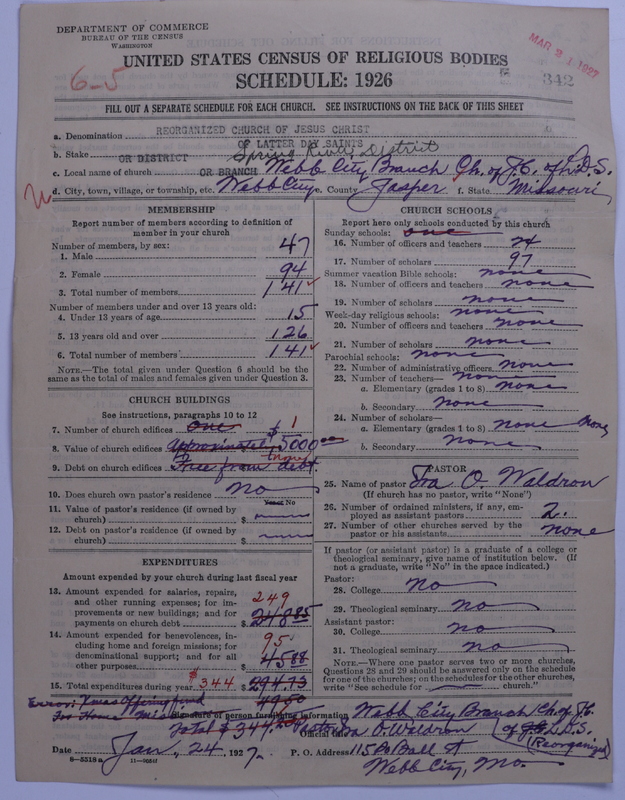 DEPARTMENT OF COMMERCE
BUREAU OF THE CENSUS
WASHINGTON
MAR 21 1927
UNITED STATES CENSUS OF RELIGIOUS BODIES
6-5
SCHEDULE: 1926
342
FILL OUT A SEPARATE SCHEDULE FOR EACH CHURCH. SEE INSTRUCTIONS ON THE BACK OF THIS SHEET
a. Denomination REORGANIZED CHURCH OF JESUS CHRIST
OF LATTER DAY SAINTS
b. Stake OR DISTRICT Spring River District
c. Local name of church OR BRANCH Webb City Branch Ch. of J.C. of L.D.S.
d. City, town, village, or township, etc. Webb City e. County Jasper f. State Missouri
MEMBERSHIP
Report number of members according to definition of
member in your church
Number of members, by sex:
1. Male 47
2. Female 94
3. Total number of members 141
Number of members under and over 13 years old:
4. Under 13 years of age 15
5. 13 years old and over 126
6. Total number of members 141
NOTE.—The total given under Question 6 should be the
same as the total of males and females given under Question 3.
CHURCH BUILDINGS
See instructions, paragraphs 10 to 12
7. Number of church edifices one 1
8. Value of church edifices Approximately $5000.00
9. Debt on church edifices Free from debt none
10. Does church own pastor's residence no
Yes or No
11. Value of pastor's residence (if owned by
church) $
12. Debt on pastor's residence (if owned by
church) $
EXPENDITURES
Amount expended by your church during last fiscal year
13. Amount expended for salaries, repairs, 249
and other running expenses; for im-
provements or new buildings; and for
payments on church debt $ 248.85
14. Amount expended for benevolences, in- 95
cluding home and foreign missions; for
denominational support; and for all
other purposes 45.88
15. Total expenditures during year $344 294.73
Error: Xmas Offering fund 49.50
CHURCH SCHOOLS
Report here only schools conducted by this church
Sunday schools: one
16. Number of officers and teachers 24
17. Number of scholars 97
Summer vacation Bible schools: none
18. Number of officers and teachers none
19. Number of scholars none
Week-day religious schools: none
20. Number of officers and teachers none
21. Number of scholars none
Parochial schools: none
22. Number of administrative officers none
23. Number of teachers— none
a. Elementary (grades 1 to 8) none
b. Secondary none
24. Number of scholars—
a. Elementary (grades 1 to 8) none none
b. Secondary none
PASTOR
25. Name of pastor Ira O. Waldron
(If church has no pastor, write "None")
26. Number of ordained ministers, if any, em-
ployed as assistant pastors 2.
27. Number of other churches served by the
pastor or his assistants none
If pastor (or assistant pastor) is a graduate of a college or
theological seminary, give name of institution below. (If
not a graduate, write "No" in the space indicated.)
Pastor:
28. College no
29. Theological seminary no
Assistant pastor:
30. College no
31. Theological seminary no
NOTE.—Where one pastor serves two or more churches,
Questions 28 and 29 should be answered only on the schedule
for one of the churches; on the schedules for the other churches,
write "See schedule for church."
For Home Signature of person furnishing information Webb City Branch Ch. of J.C.
Total $344 Ira O. Waldron of L.D.S.
(Reorganized)
Date Jan, 24, 1927. P. O. Address 115 Ball St
8—5318a Webb City, Mo.